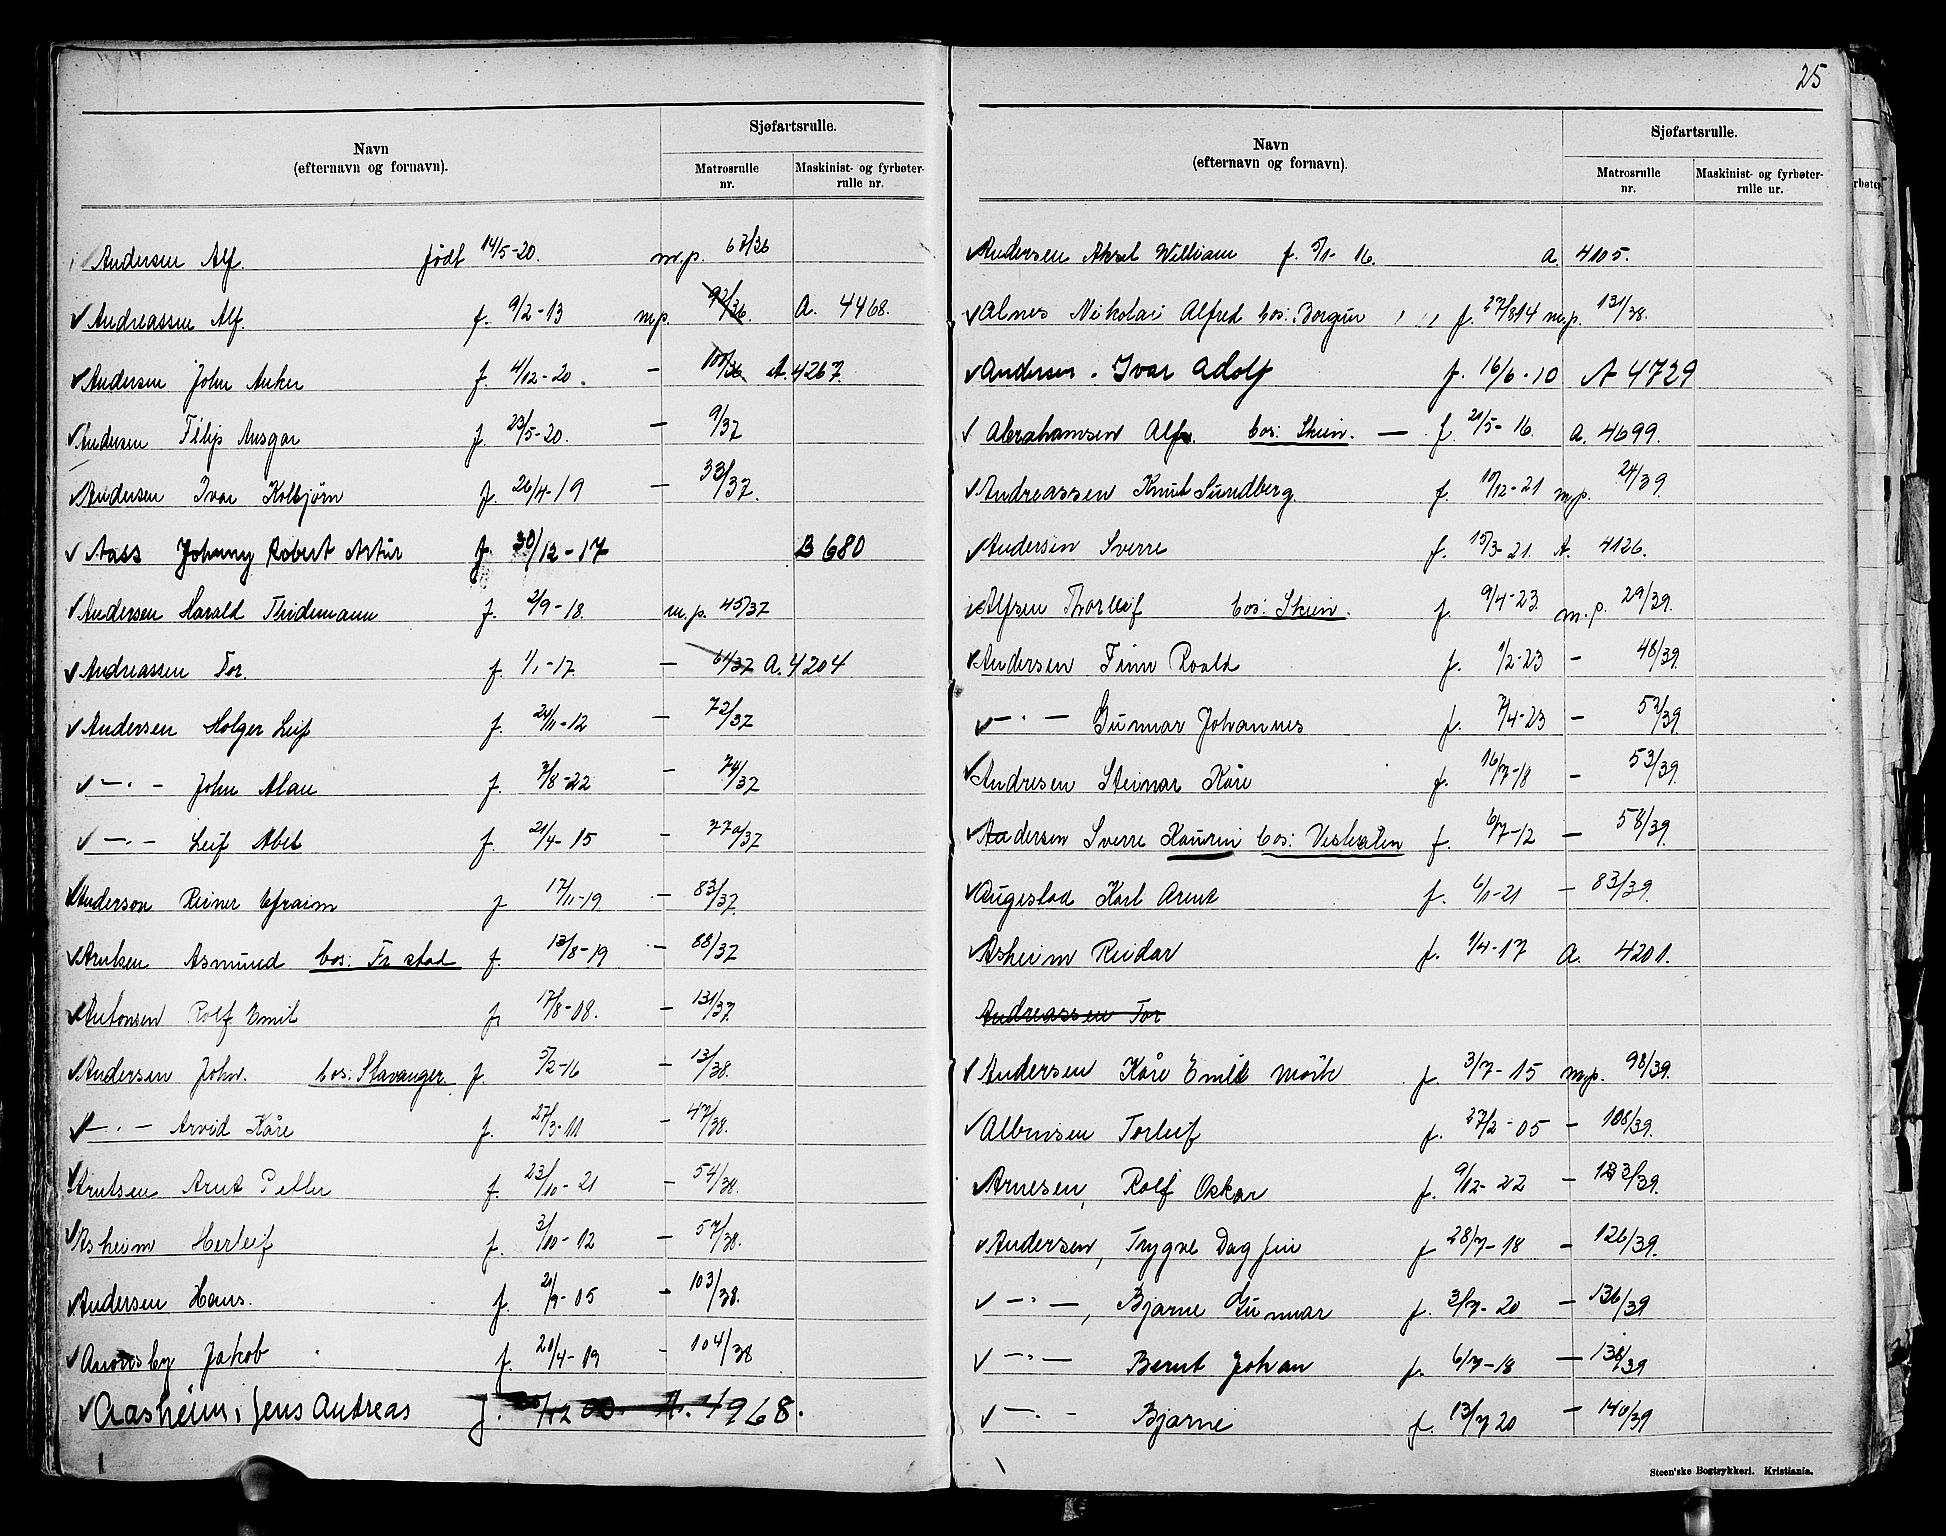 Navn
(efternavn og fornavn).
Sjøfartsrulle.
Matrosrulle
nr.
Maskinist- og fyrbøter-
rulle nr.
Andersen Alf. født 14/5-20. m.p. 67/36
Andreassen Alf. f. 9/2-13 m.p. 92/36. A. 4468.
Andersen John Anker f. 4/12-20. — 100/36 A. 4267.
Andersen Filip Ansgar f. 23/5-20. — 9/37
Andersen Ivar Kolbjørn f. 26/4-19 — 33/37.
Aass Johnny Robert Artur f. 30/12-17 B 680
Andersen Harald Thidemann f. 2/9-18. m.p. 45/37
Andreassen Tor. f. 1/1-17. — 61/37 A. 4204
Andersen Holger Leif f. 24/11-12 — 72/37
—"— John Alan f. 7/8-22 — 74/37
—"— Leif Abel f. 21/4-15 — 77a/37
Anderson Reiner Efraim f 17/11-19. — 83/37.
Arntsen Asmund bos: Fr.stad f. 13/8-19 — 88/37
Antonsen Rolf Emil f. 17/8-08. — 131/37.
Andersen John. bos: Stavanger. f. 5/2-16 — 13/38.
—"— Arvid Kåre f. 27/3-11 — 47/38.
Arntsen Arnt Petter f. 23/10-21 — 54/38.
Asheim Herleif f. 3/10-12 — 57/38.
Andersen Hans. f. 21/9-05 — 103/38.
Jakob f. 20/4-19 — 104/38
Aasheim, Jens Andreas f. /12 00. A. 4968.
25
Navn
(efternavn og fornavn).
Sjøfartsrulle.
Matrosrulle
nr.
Maskinist- og fyrbøter-
rulle nr.
Andersen Aksel William f. 5/1-16. A 4105.
Alnes Nikolai Alfred bos: f. 27/8 14 m.p. 131/38.
Andersen. Ivar Adolf f. 16/6-10 A 4729
Abrahamsen Alf. bos: Skien. — f. 21/5-16. A. 4699.
Andreassen Knut Sundberg f. 10/12-21 m.p. 24/39.
Andersen Sverre f. 15/3-21. A. 4126.
Alfsen Thorleif bos: Skien. f. 9/4-23. m.p. 29/39.
Andersen Finn Roald f. 1/2-23 — 48/39.
—"— Gunnar Johannes f. 7/4-23 — 52/39.
Andresen Steinar Kåre f. 16/7-18 — 53/39.
Andersen Sverre Kaurin bos: Vesterålen f. 6/7-12 — 58/39.
Augestad Karl Arent f. 6/1-21 — 83/39.
Asheim Reidar f. 1/4-17 A. 4201.
Andreassen Tor
Andersen Kåre Emil Mörk f. 3/7-15 m.p. 98/39.
Torleif f. 27/2-05 — 108/39.
Arnesen, Rolf Oskar f. 9/12-22 — 123/39.
Andersen, Trygve Dagfin f 28/7-18 — 126/39.
—"—, Bjarne Gunnar f. 3/7-20 — 136/39
—"— Bernt Johan f. 6/7-18 — 138/39
—"— Bjarne f. 13/7 20 — 140/39
Steen'ske Bogtrykkeri. Kristiania.